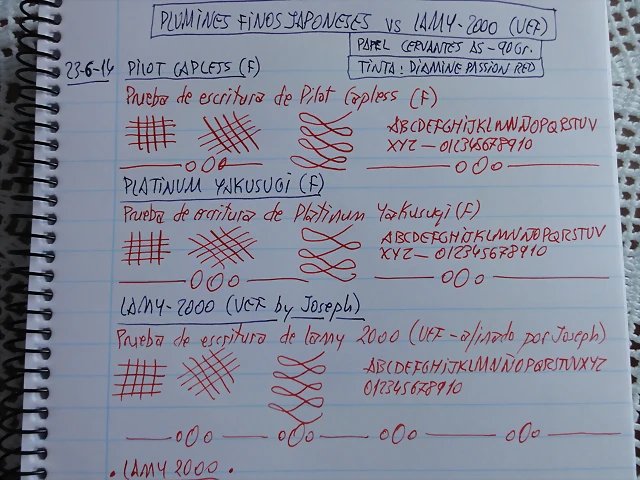 PLUMINES FINOS JAPONESES VS LAMY-2000 (UEF)
PAPEL CERVANTES A5-90Gr.
TINTA: DIAMINE PASSION RED
23-6-14 PILOT CAPLESS (F)
Prueba de escritura de Pilot Capless (F)
ABCDEFGHIJKLMNÑOPQRSTUV
XYZ — 012345678910
PLATINUM YAKUSUGI (F)
Prueba de escritura de Platinum Yakusugi (F)
ABCDEFGHIJKLMNÑOPQRSTUV
XYZ — 012345678910
LAMY-2000 (UEF by Joseph)
Prueba de escritura de Lamy 2000 (UEF-afinado por Joseph)
ABCDEFGHIJKLMNÑOPQRSTUVXYZ
012345678910
• LAMY 2000 •